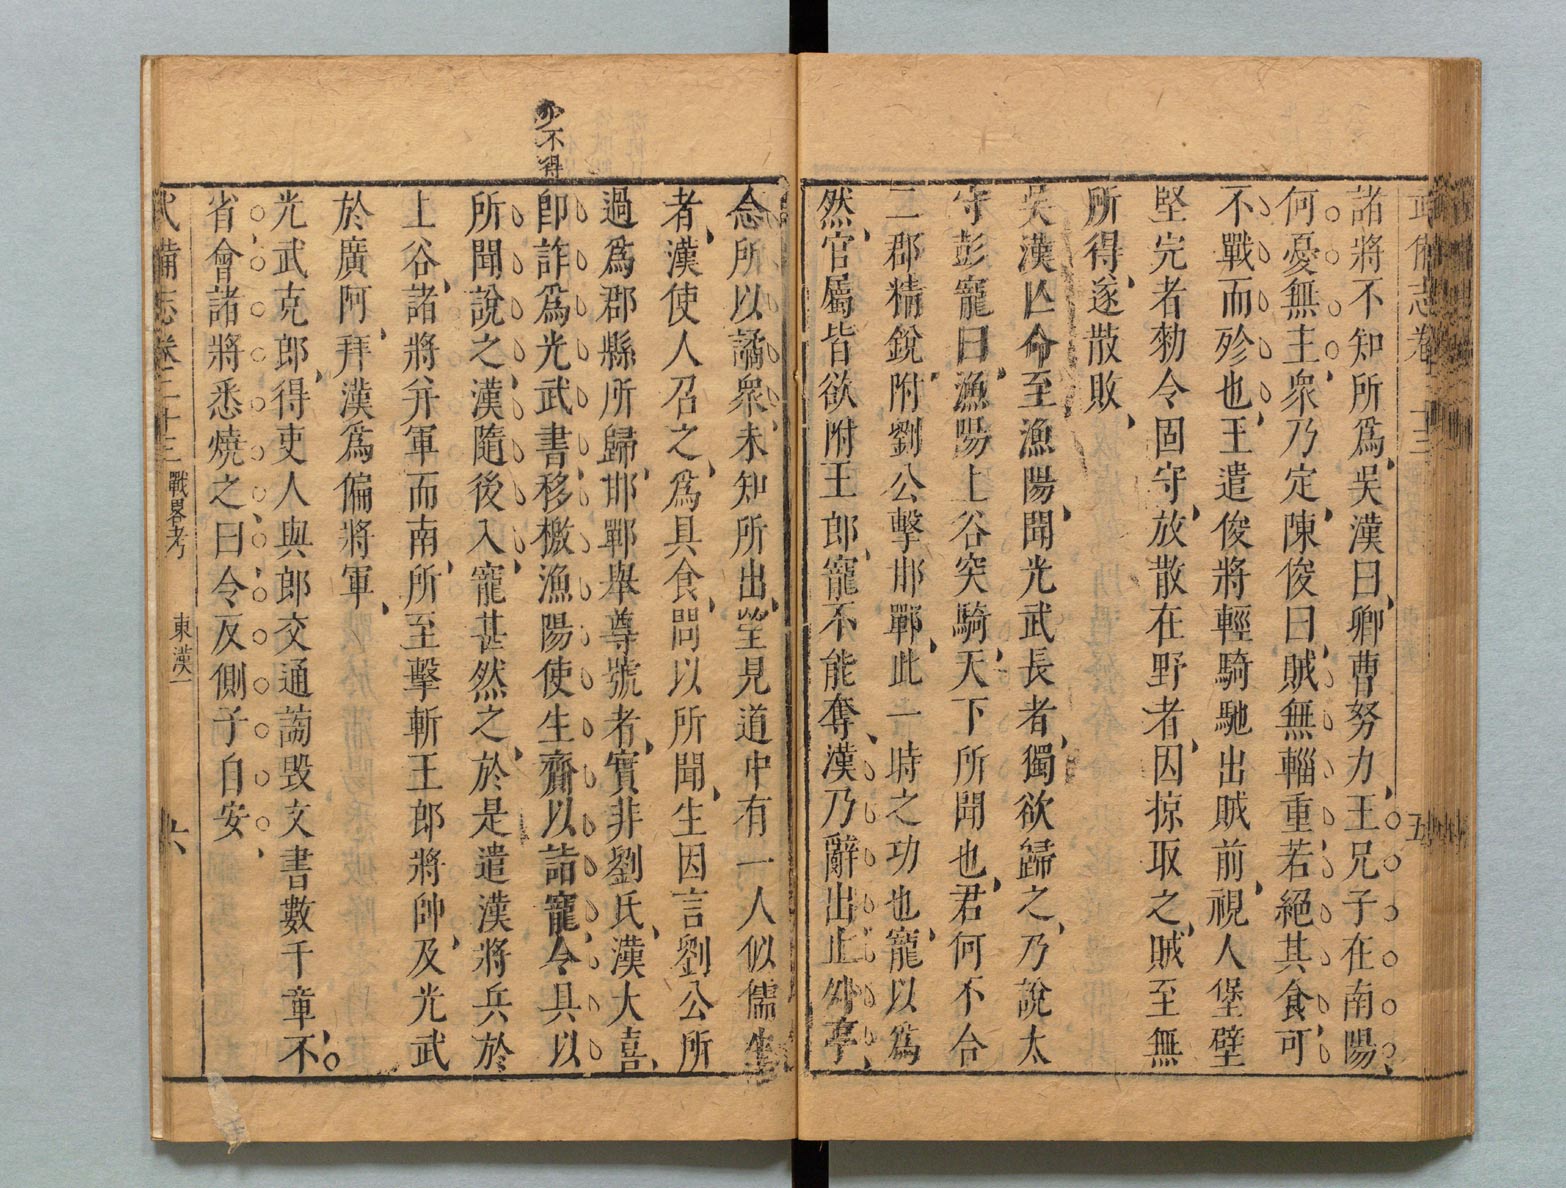 武備志卷二十三
五
諸將不知所爲吳漢曰卿曹努力王兄子在南陽
何憂無主衆乃定陳俊曰賊無輜重若絕其食可
不戰而殄也王遣俊將輕騎馳出賊前視人堡壁
堅完者勑令固守放散在野者因掠取之賊至無
所得遂散敗
吳漢亾命至漁陽聞光武長者獨欲歸之乃說太
守彭寵曰漁陽上谷突騎天下所聞也君何不合
二郡精銳附劉公擊邯鄲此一時之功也寵以爲
然官屬皆欲附王郎寵不能奪漢乃辭出止外亭
念所以譎衆未知所出望見道中有一人似儒生
者漢使人召之爲具食問以所聞生因言劉公所
過爲郡縣所歸邯鄲舉尊號者實非劉氏漢大喜
少不得
卽詐爲光武書移檄漁陽使生齎以詣寵令具以
所聞說之漢隨後入寵甚然之於是遣漢將兵於
上谷諸將并軍而南所至擊斬王郎將帥及光武
於廣阿拜漢爲偏將軍
光武克郎得吏人與郎交通謗毀文書數千章不
省會諸將悉燒之曰令反側子自安
武備志卷二十三 戰畧考 東漢一 六